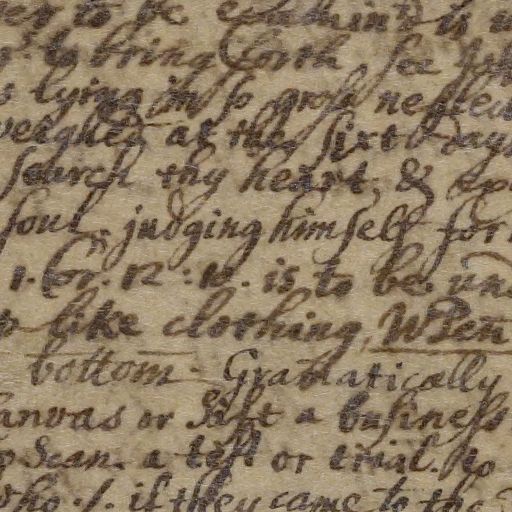 to be is
to bring forth see
lying in so gross neglect
weighed at the sixt days
search thy heart, &
soul. judging himself for
1. Cor. 12 : 10. is to be und
like clothing, When
bottom. Gramatically
canvas or sift a business
scan. a test or trial. to
who ./. if they came to the